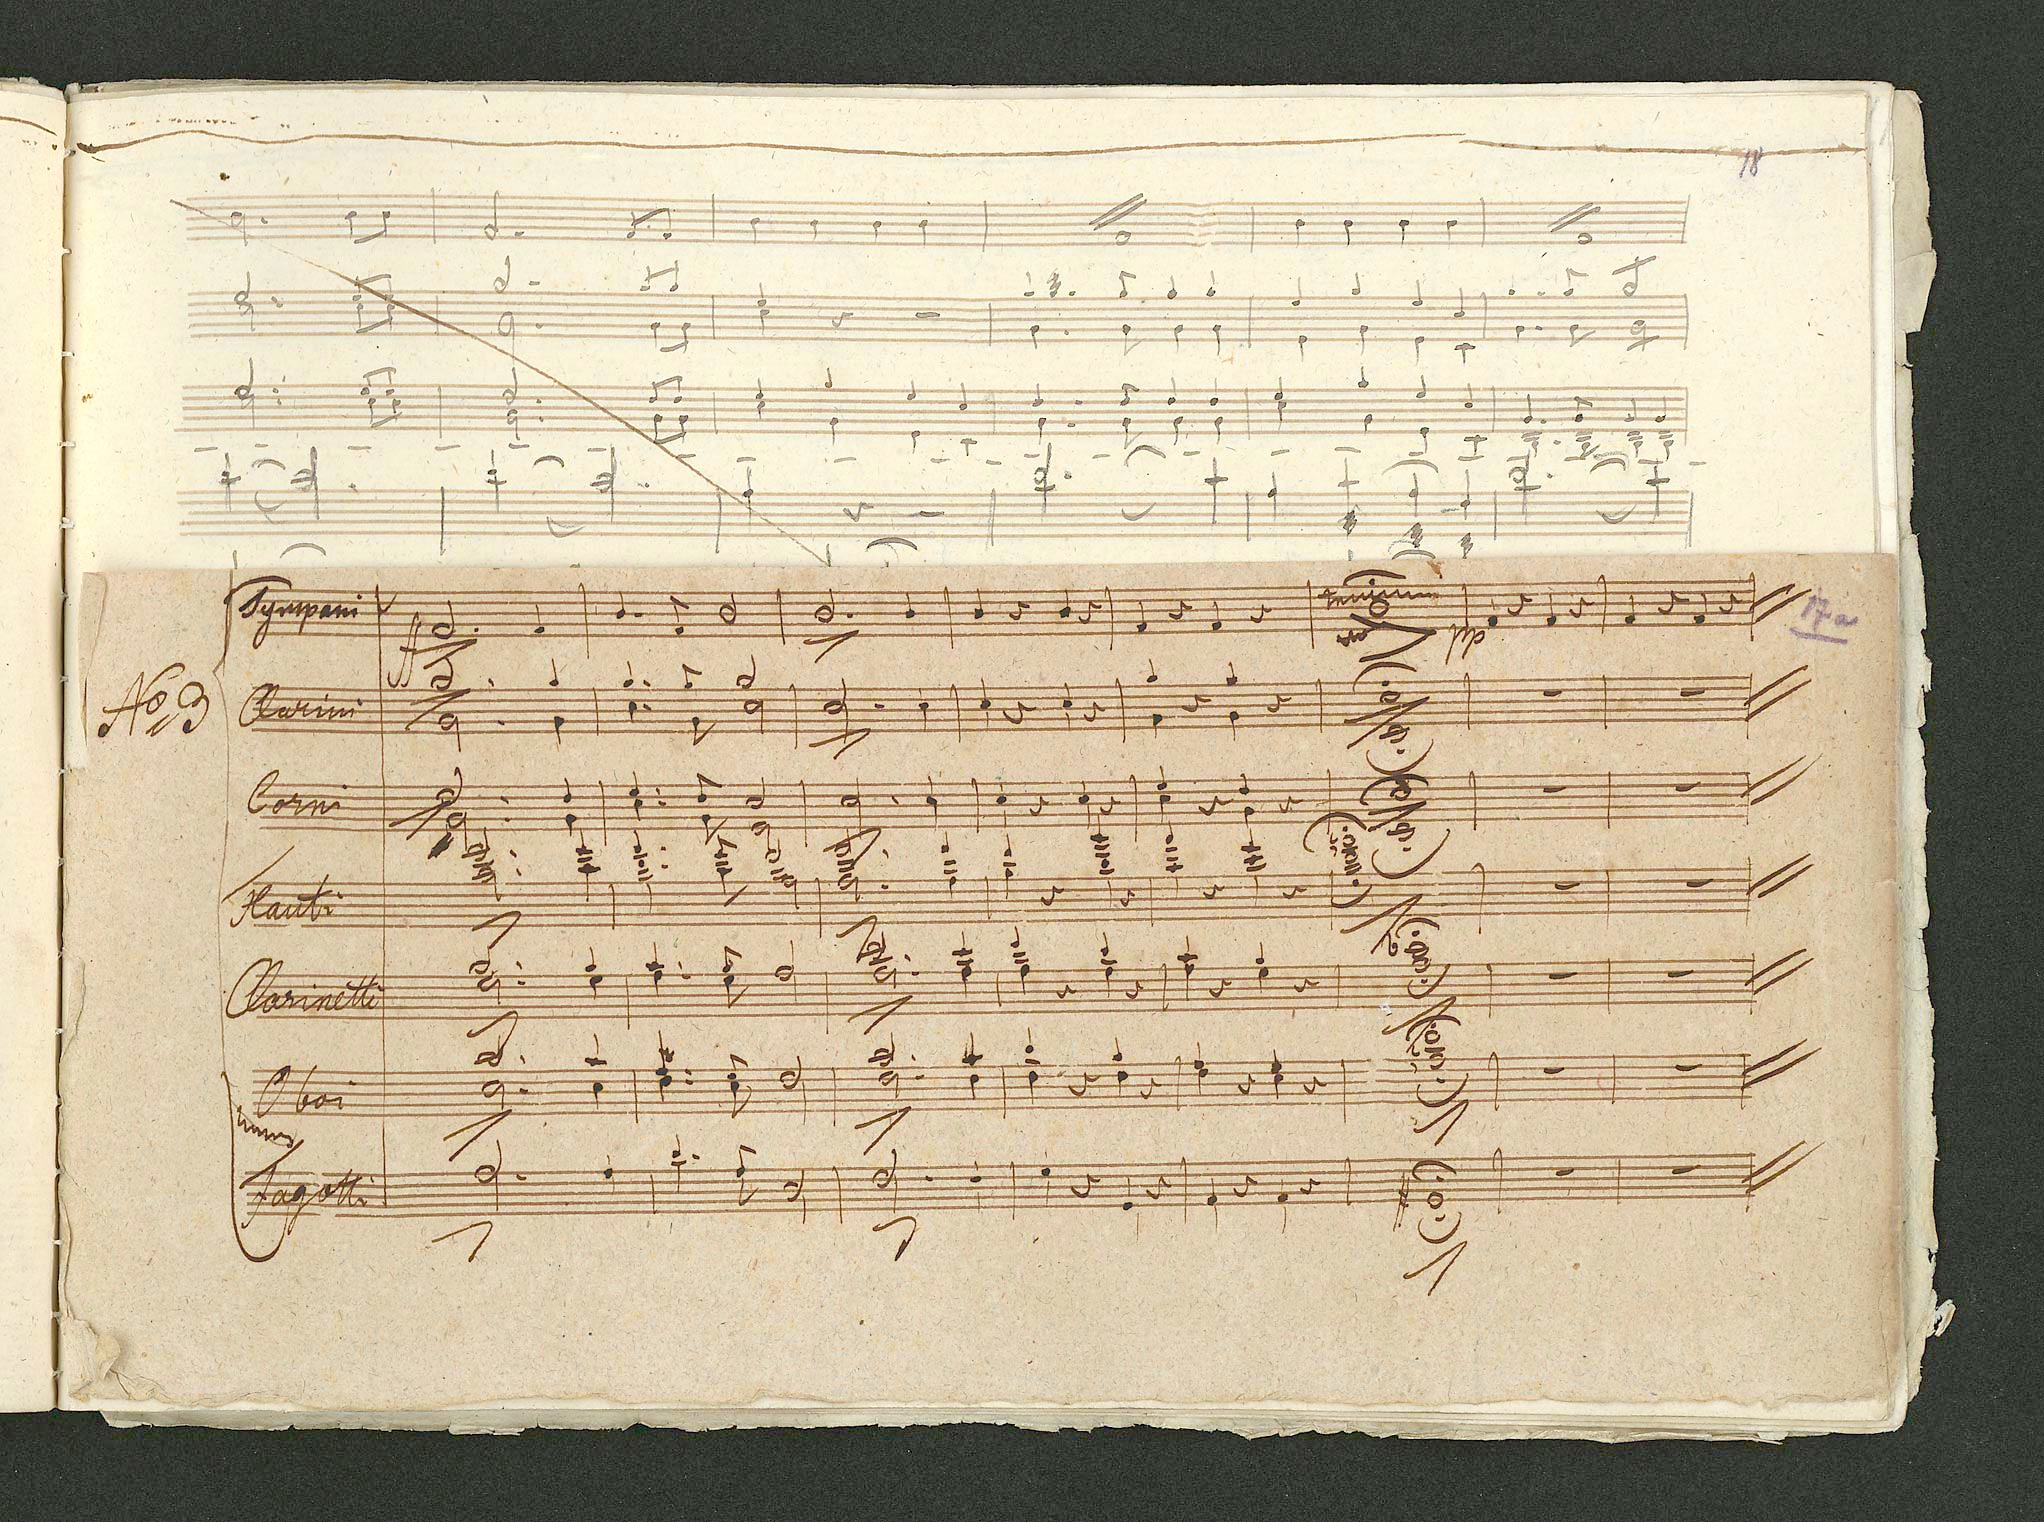 18
Tympani ff tenuto
17a
No 3 Clarini
Corni
Flauti
Clarinetti
Oboi
Fagotti